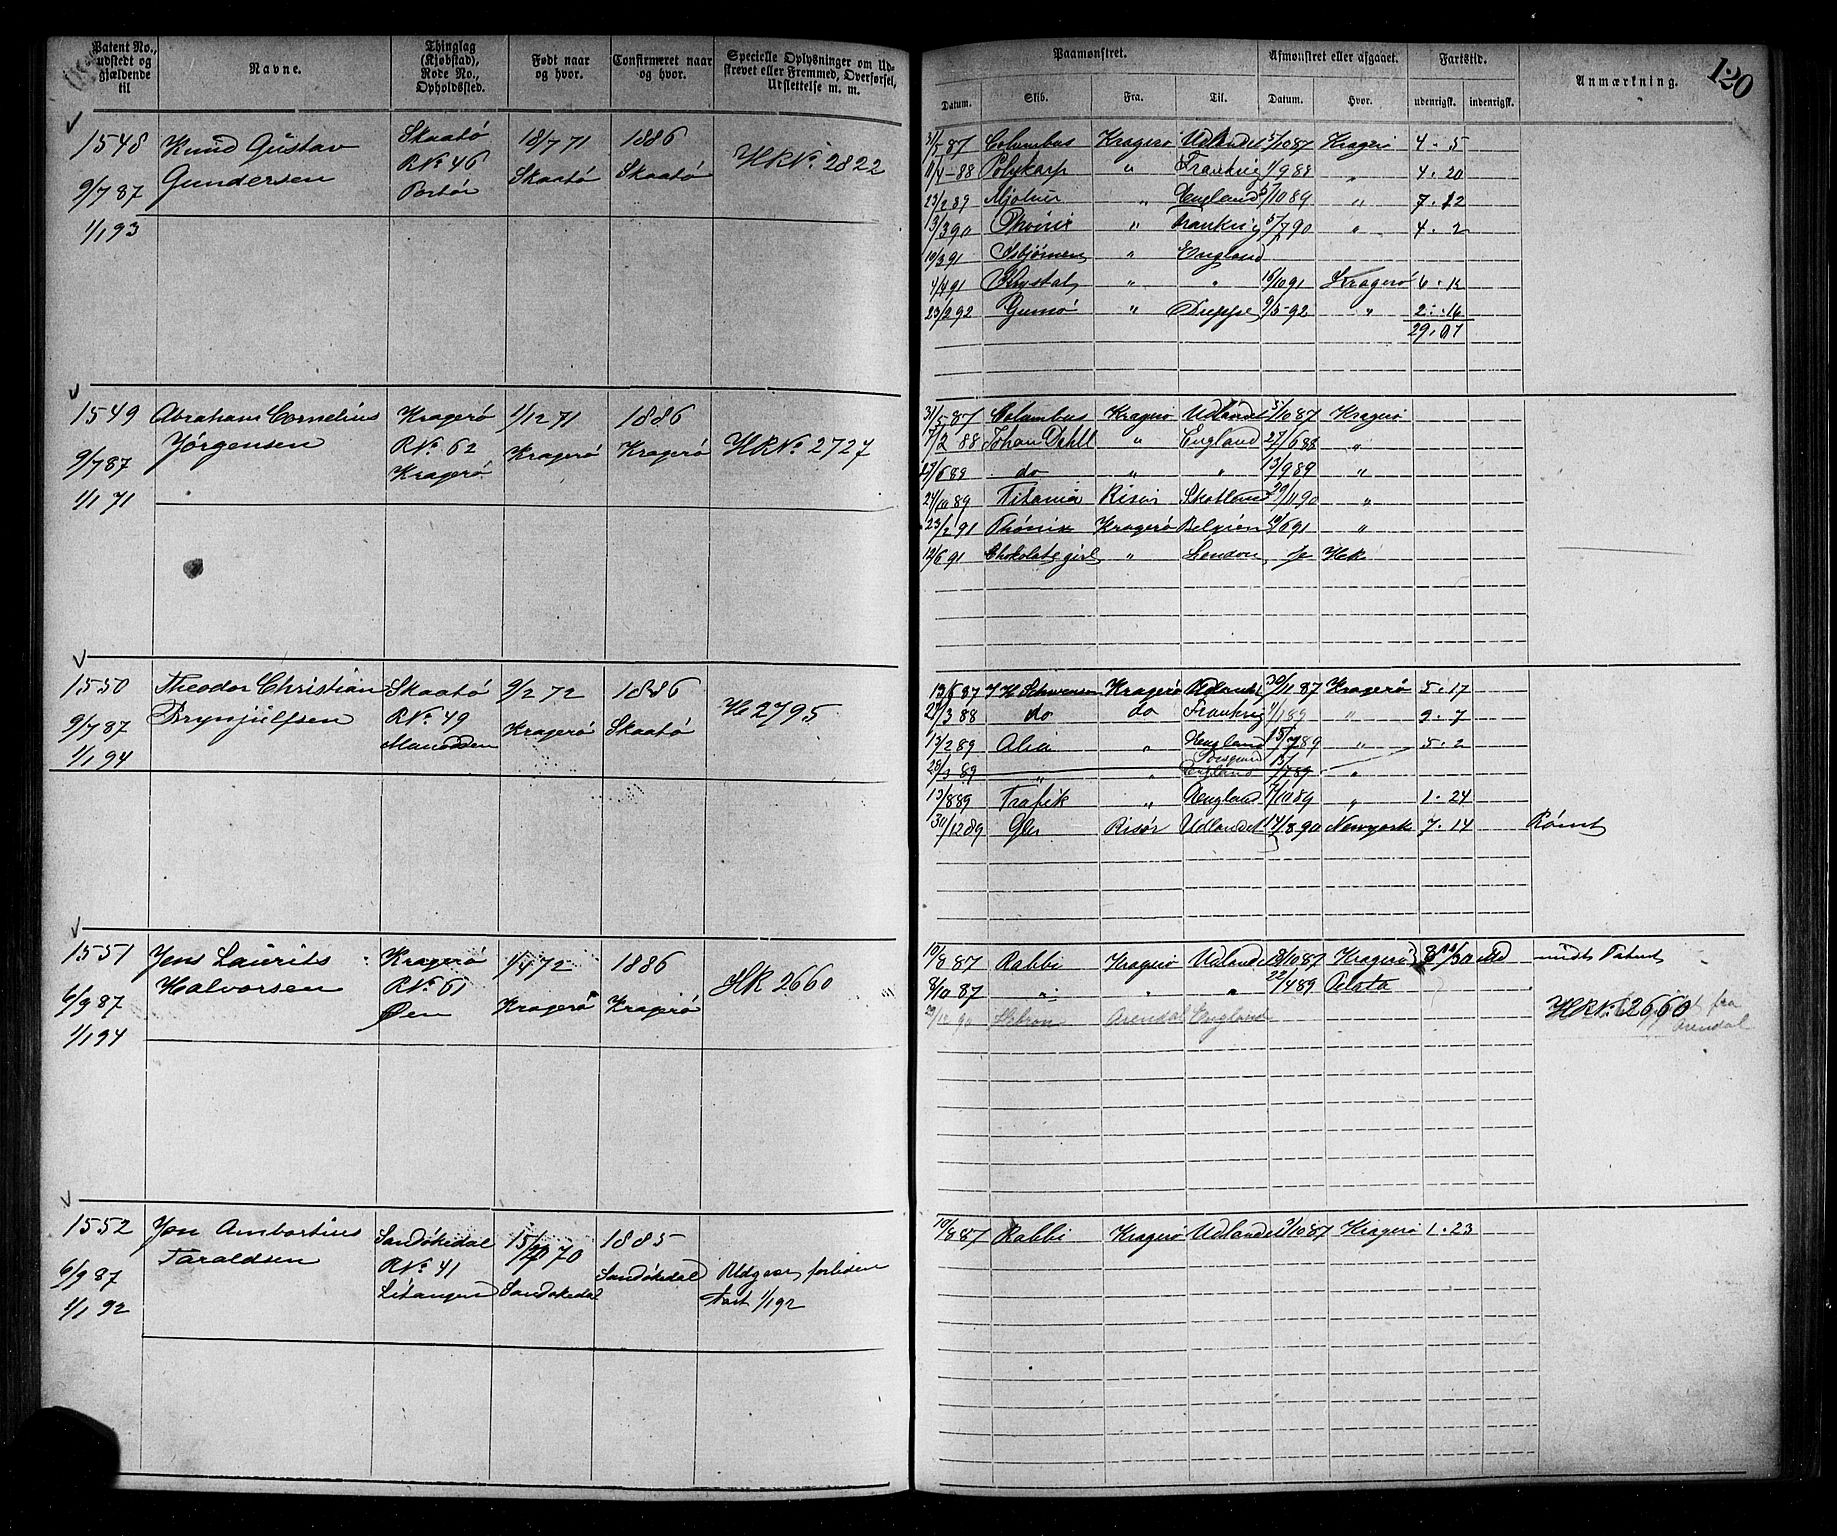 Patent No., udstedt og gjældende til | Navne. | Thinglag (Kjøbstad), Rode No., Opholdssted. | Født naar og hvor. | Confirmeret naar og hvor. | Specielle Oplysninger om Udskrevet eller Fremmed, Overførsel, Udslettelse m. m.
Paamønstret. | Afmønstret eller afgaaet. | Fartstid. | Anmærkning. | 120
Datum. | Skib. | Fra. | Til. | Datum. | Hvor. | udenrigsk. | indenrigsk.
1548 | Knud Gustav | Skaatø | 18/7 71 | 1886 | HRNo. 2822
9/7 87 | Gundersen | RNo. 46 | Skaatø | Skaatø
1/1 93 | Portør
31/5 87 | Columbus | Kragerø | Udlandet | 5/10 87 | Kragerø | 4 . 5
11/4 - 88 | Polykarp | " | Frankrig | 1/9 88 | " | 4 . 20
23/2 89 | Mjølner | " | England | 5/10 89 | " | 7 . 12
13/3 90 | Phønix | " | Frankrig | 5/7 90 | " | 4 . 2
10/3 91 | Isbjørnen | " | England
4/4 91 | Krystal | " | " | 16/10 91 | Kragerø | 6 . 12
23/2 92 | Gumø | " | Dieppe | 9/5 - 92 | " | 2 . 16
29 . 07
1549 | Abraham Cornelius | Kragerø | 1/12 71 | 1886 | HRNo. 2727
9/7 87 | Jørgensen | RNo. 62 | Kragerø | Kragerø
1/1 71 | Kragerø
31/5 87 | Columbus | Kragerø | Udlandet | 5/10 87 | Kragerø
17/2 88 | Johan Dahll | " | England | 27/6 88 | "
/6 89 | do | " | " | 13/9 89 | "
24/10 89 | Titania | Risør | Skotland | 29/11 90 | "
23/2 91 | Phønix | Kragerø | Belgien | 10/6 91 | "
12/6 91 | Chokolate girl | " | London | se HR
1550 | Theodor Christian | Skaatø | 9/2 72 | 1886 | H 2795
9/7 87 | Brynjulfsen | RNo. 49 | Kragerø | Skaatø
1/1 94
13/6 87 | J H Schwensen | Kragerø | Udlandet | 30/11 87 | Kragerø | 5 . 17
/3 88 | do | do | Frankrig | 1/1 89 | " | 9 . 7
13/2 89 | Alia | " | England | 15/7 89 | " | 5 . 2
/3 89 | " | " | England | 15/7 89 | "
13/8 89 | Trafik | " | England | 7/10 89 | " | 1 . 24
30/12 89 | Gler | Risør | Udlandet | 14/8 90 | Newyork | 7 . 14 | Rømt
1551 | Jens Laurits | Kragerø | 1/4 72 | 1886 | HR 2660
6/9 87 | Halvorsen | RNo. 61 | Kragerø | Kragerø
1/1 94 | Øen
10/8 87 | Rabbi | Kragerø | Udlandet | 3/10 87 | Kragerø
8/10 87 | " | " | " | 22/4 89
Hebron | Arendal | England | HRNo. 2660 | fra Arendal
1552 | Jon Ambortius | Sandøkedal | 15/ 70 | 1885
6/9 87 | Taraldsen | RNo. 41 | Sandøkedal | Sandøkedal | Udgaar forleden
1/1 92 | Litangen | Fart 1/1 92
10/8 87 | Rabbi | Kragerø | Udlandet | 3/10 87 | Kragerø | 1 . 23